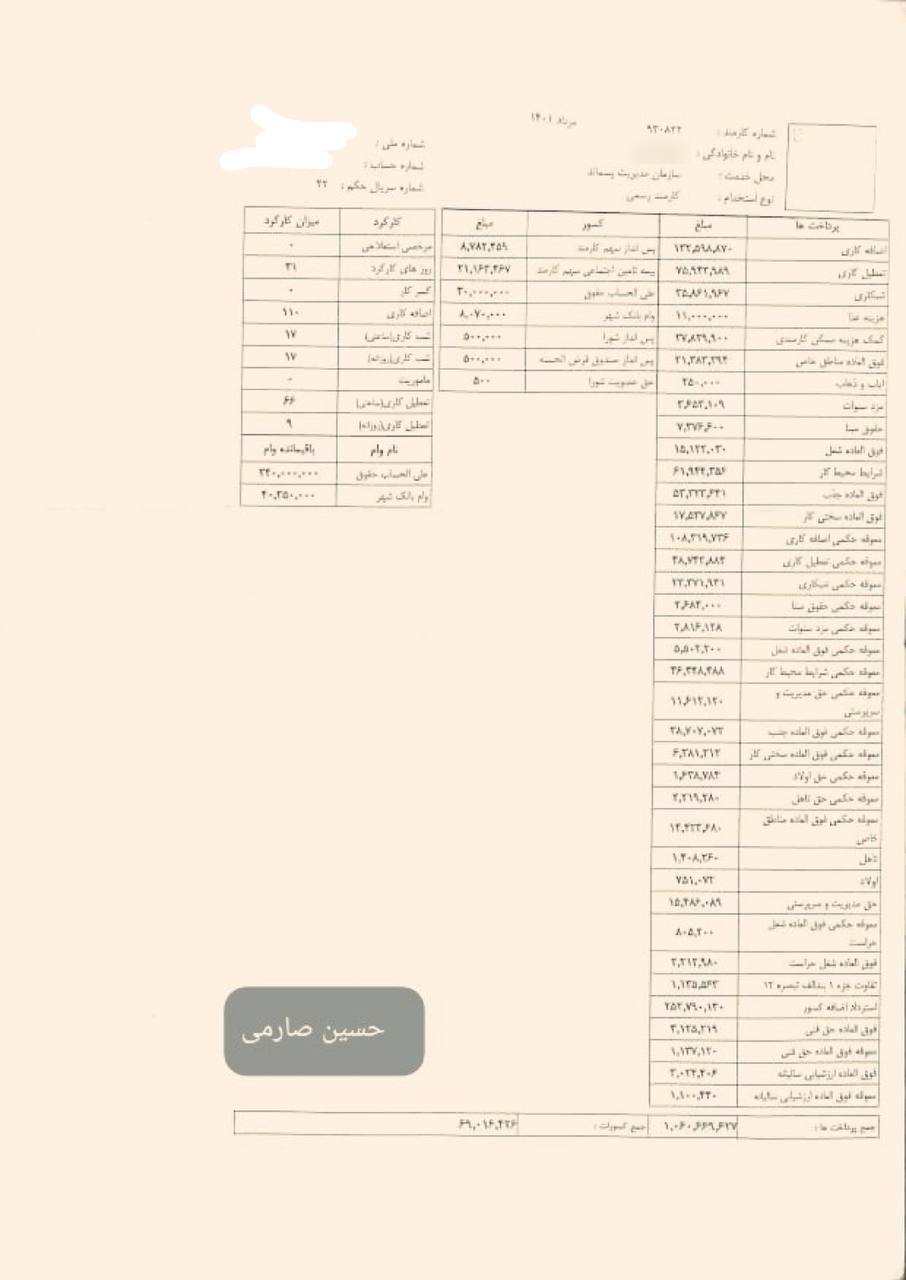 مرداد ۱۴۰۱
شماره کارمند : ۹۳۰۸۲۲
نام و نام خانوادگی :
محل خدمت : سازمان مدیریت پسماند
نوع استخدام : کارمند رسمی
شماره ملی :
شماره حساب :
شماره سریال حکم : ۲۲
پرداخت ها مبلغ
اضافه کاری ۱۲۲,۵۹۸,۸۷۰
تعطیل کاری ۷۵,۹۴۳,۹۸۹
شبکاری ۳۵,۸۶۱,۹۶۷
هزینه غذا ۱۱,۰۰۰,۰۰۰
کمک هزینه مسکن کارمندی ۳۷,۸۲۹,۹۰۰
فوق العاده مناطق خاص ۲۱,۳۸۳,۲۹۴
ایاب و ذهاب ۲۵۰,۰۰۰
مزد سنوات ۳,۶۵۳,۱۰۹
حقوق مبنا ۷,۳۷۶,۶۰۰
فوق العاده شغل ۱۵,۱۲۲,۰۳۰
شرایط محیط کار ۶۱,۹۴۴,۳۵۶
فوق العاده جذب ۵۳,۳۲۳,۶۴۱
فوق العاده سختی کار ۱۷,۵۳۷,۸۶۷
معوقه حکمی اضافه کاری ۱۰۸,۳۱۹,۷۳۶
معوقه حکمی تعطیل کاری ۴۸,۷۴۳,۸۸۴
معوقه حکمی شبکاری ۲۳,۳۷۱,۹۳۱
معوقه حکمی حقوق مبنا ۲,۶۸۴,۰۰۰
معوقه حکمی مزد سنوات ۲,۸۱۶,۱۲۸
معوقه حکمی فوق العاده شغل ۵,۵۰۲,۲۰۰
معوقه حکمی شرایط محیط کار ۳۶,۳۴۸,۴۸۸
معوقه حکمی حق مدیریت و
سرپرستی ۱۱,۶۱۲,۱۲۰
معوقه حکمی فوق العاده جذب ۳۸,۷۰۷,۰۷۲
معوقه حکمی فوق العاده سختی کار ۶,۳۸۱,۳۱۲
معوقه حکمی حق اولاد ۱,۶۳۸,۷۸۴
معوقه حکمی حق تاهل ۲,۲۱۹,۲۸۰
معوقه حکمی فوق العاده مناطق
خاص ۱۴,۴۲۳,۶۸۰
تاهل ۱,۴۰۸,۲۶۰
اولاد ۷۵۱,۰۷۲
حق مدیریت و سرپرستی ۱۵,۴۸۶,۰۸۹
معوقه حکمی فوق العاده شغل
حراست ۸۰۵,۲۰۰
فوق العاده شغل حراست ۲,۲۱۲,۹۸۰
تفاوت جزء ۱ بندالف تبصره ۱۲ ۱,۱۳۵,۵۶۳
استرداد اضافه کسور ۲۵۲,۷۹۰,۱۳۰
فوق العاده حق فنی ۳,۱۲۵,۲۱۹
معوقه فوق العاده حق فنی ۱,۱۳۷,۱۲۰
فوق العاده ارزشیابی سالیانه ۳,۰۲۴,۴۰۶
معوقه فوق العاده ارزشیابی سالیانه ۱,۱۰۰,۴۴۰
کسور مبلغ
پس انداز سهم کارمند ۸,۷۸۲,۴۵۹
بیمه تامین اجتماعی سهم کارمند ۲۱,۱۶۳,۴۶۷
علی الحساب حقوق ۳۰,۰۰۰,۰۰۰
وام بانک شهر ۸,۰۷۰,۰۰۰
پس انداز شورا ۵۰۰,۰۰۰
پس انداز صندوق قرض الحسنه ۵۰۰,۰۰۰
حق عضویت شورا ۵۰۰
کارکرد میزان کارکرد
مرخصی استعلاجی ۰
روز های کارکرد ۳۱
کسر کار ۰
اضافه کاری ۱۱۰
شب کاری(ساعتی) ۱۷
شب کاری(روزانه) ۱۷
ماموریت ۰
تعطیل کاری(ساعتی) ۶۶
تعطیل کاری(روزانه) ۹
نام وام باقیمانده وام
علی الحساب حقوق ۲۴۰,۰۰۰,۰۰۰
وام بانک شهر ۴۰,۳۵۰,۰۰۰
حسین صارمی
جمع پرداخت ها : ۱,۰۶۰,۶۶۹,۶۲۷ جمع کسورات : ۶۹,۰۱۶,۴۲۶